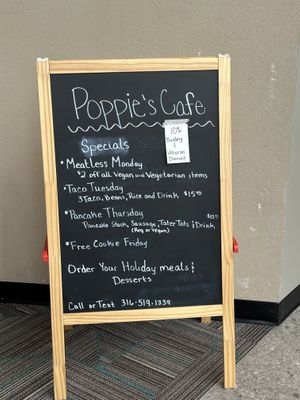 Poppie's Cafe
Specials
10%
Building
&
Veteran
Discount
• Meatless Monday
$2 off all Vegan and Vegetarian items
• Taco Tuesday
3 Taco, Beans, Rice and Drink $15
• Pancake Thursday
Pancake Stack, Sausage, Tater Tots & Drink
(Reg or Vegan)
• Free Cookie Friday
Order Your Holiday meals &
Desserts
Call or Text 316-519-1339